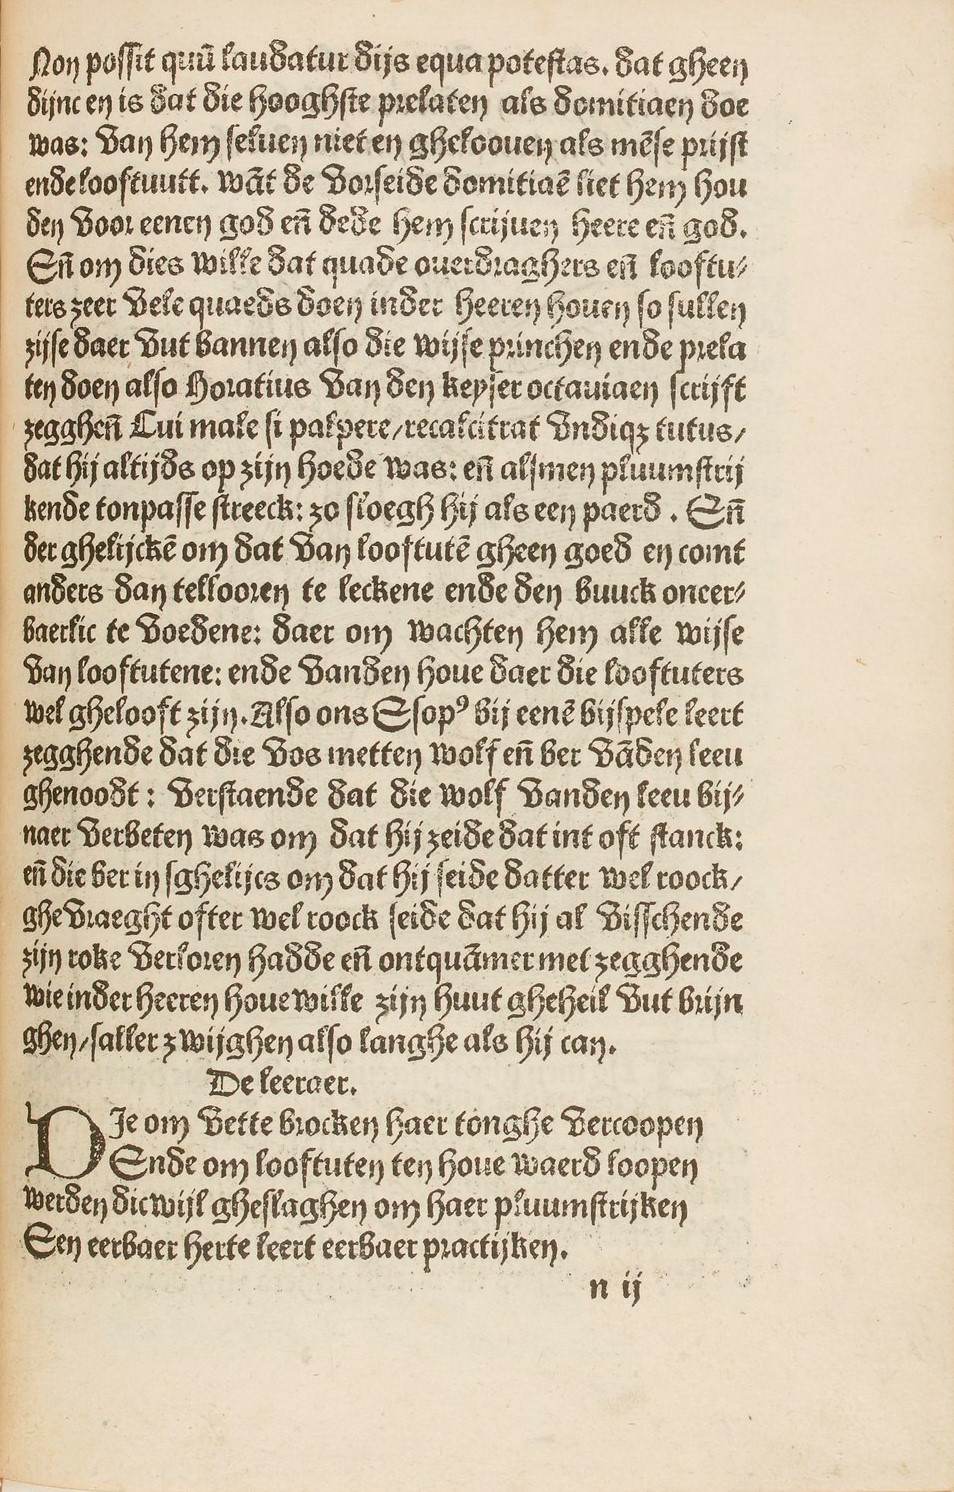 Non possit quū laudatur dijs equa potestas. dat gheen
dijnc en is dat die hooghste prelaten als domitiaen doe
was: van hem seluen niet en ghelooven als mēse prijst
ende looftuutt. wāt de vorseide domitiaē liet hem hou
den voor eenen god eñ dede hem scrijuen heere eñ god.
Eñ om dies wille dat quade ouerdraghers eñ looftu⸗
ters zeer vele quaeds doen inder heeren houen so sullen
zijse daer vut bannen also die wijse princhen ende prela
ten doen also Horatius van den keyser octauiaen scrijft
zeggheñ Cui male si palpere/recalcitrat vndiqꝫ tutus/
dat hij altijds op zijn hoede was: eñ alsmen pluumstrij
kende tonpasse streeck: zo sloegh hij als een paerd . Eñ
der ghelijckē om dat van looftutē gheen goed en comt
anders dan tellooren te leckene ende den buuck oneer⸗
baerlic te voedene: daer om wachten hem alle wijse
van looftutene: ende vanden houe daer die looftuters
wel ghelooft zijn. Also ons Esopꝰ bij eenē bijspele leert
zegghende dat die vos metten wolf eñ ber vāden leeu
ghenoodt : verstaende dat die wolf vanden leeu bij⸗
naer verbeten was om dat hij zeide dat int oft stanck:
eñ die ber in sghelijcs om dat hij seide datter wel roock/
ghevraeght ofter wel roock seide dat hij al visschende
zijn roke verloren hadde eñ ontquāmer met zegghende
wie inder heeren houe wille zijn huut gheheil vut brijn
ghen/saller zwijghen also langhe als hij can.
De leeraer.
DIe om vette brocken haer tonghe vercoopen
Ende om looftuten ten houe waerd loopen
werden dicwijl gheslaghen om haer pluumstrijken
Een eerbaer herte leert eerbaer practijken.
n ij